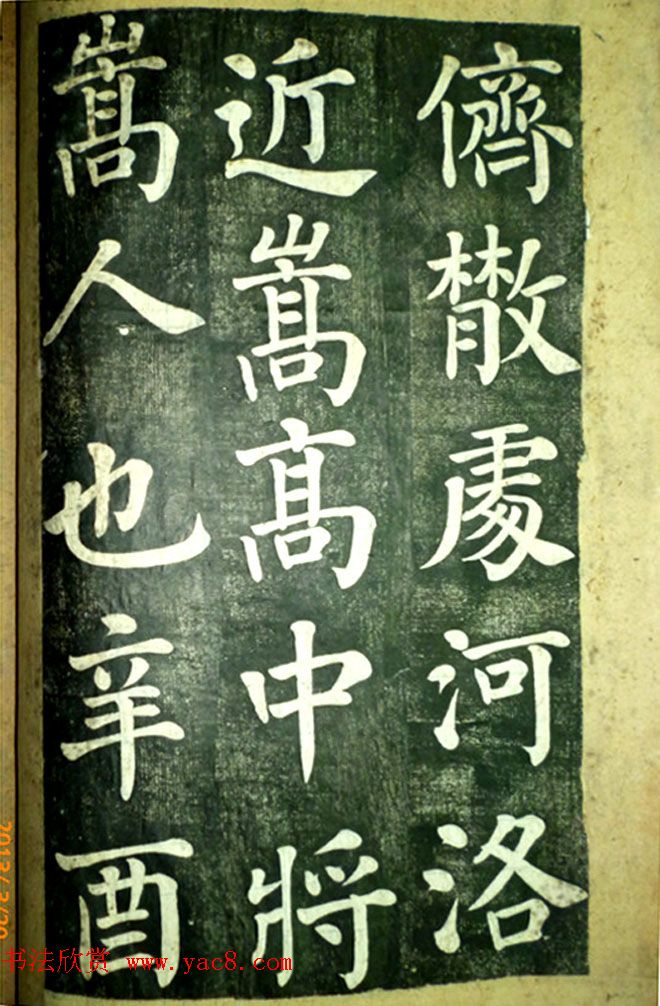 儕㪚處河洛
近嵩髙中將
嵩人也辛酉
书法欣赏 www.yac8.com